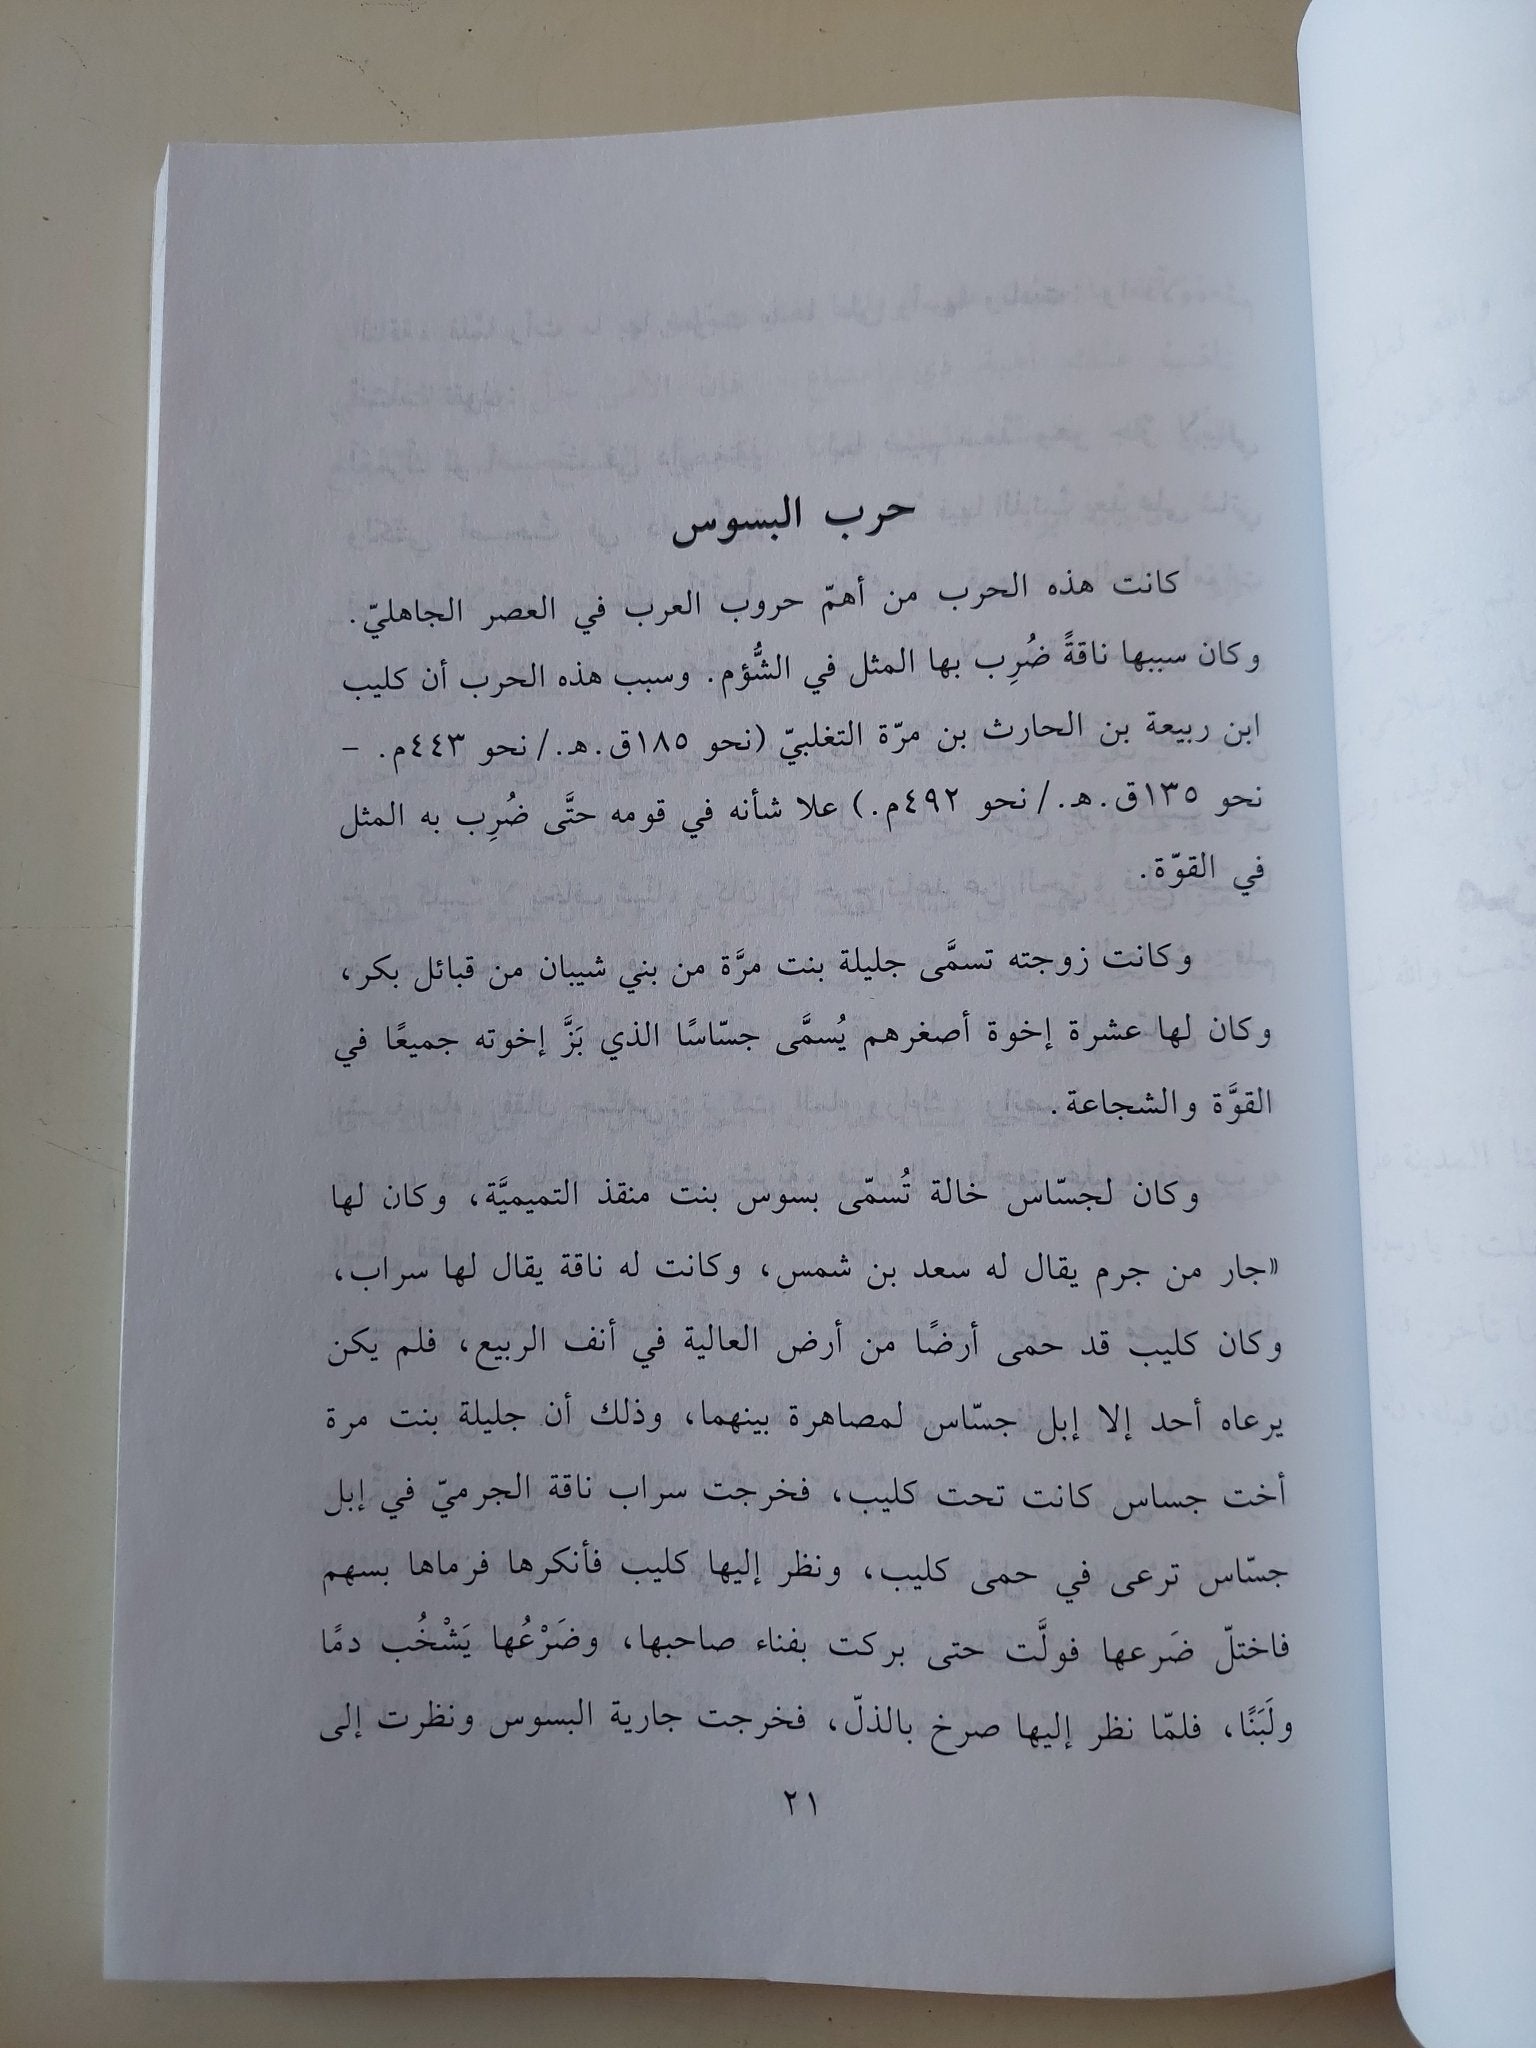 حرب البسوس
كانت هذه الحرب من أهمّ حروب العرب في العصر الجاهليّ.
وكان سببها ناقةً ضُرِب بها المثل في الشُّؤم. وسبب هذه الحرب أن كليب
ابن ربيعة بن الحارث بن مرّة التغلبيّ (نحو ١٨٥ق.هـ./ نحو ٤٤٣م. –
نحو ١٣٥ق.هـ./ نحو ٤٩٢م.) علا شأنه في قومه حتَّى ضُرِب به المثل
في القوّة.
وكانت زوجته تسمَّى جليلة بنت مرَّة من بني شيبان من قبائل بكر،
وكان لها عشرة إخوة أصغرهم يُسمَّى جسّاسًا الذي بَزَّ إخوته جميعًا في
القوَّة والشجاعة.
وكان لجسّاس خالة تُسمّى بسوس بنت منقذ التميميَّة، وكان لها
«جار من جرم يقال له سعد بن شمس، وكانت له ناقة يقال لها سراب،
وكان كليب قد حمى أرضًا من أرض العالية في أنف الربيع، فلم يكن
يرعاه أحد إلا إبل جسّاس لمصاهرة بينهما، وذلك أن جليلة بنت مرة
أخت جساس كانت تحت كليب، فخرجت سراب ناقة الجرميّ في إبل
جسّاس ترعى في حمى كليب، ونظر إليها كليب فأنكرها فرماها بسهم
فاختلّ ضَرعها فولَّت حتى بركت بفناء صاحبها، وضَرْعُها يَشْخُب دمًا
ولَبَنًا، فلمّا نظر إليها صرخ بالذلّ، فخرجت جارية البسوس ونظرت إلى
٢١